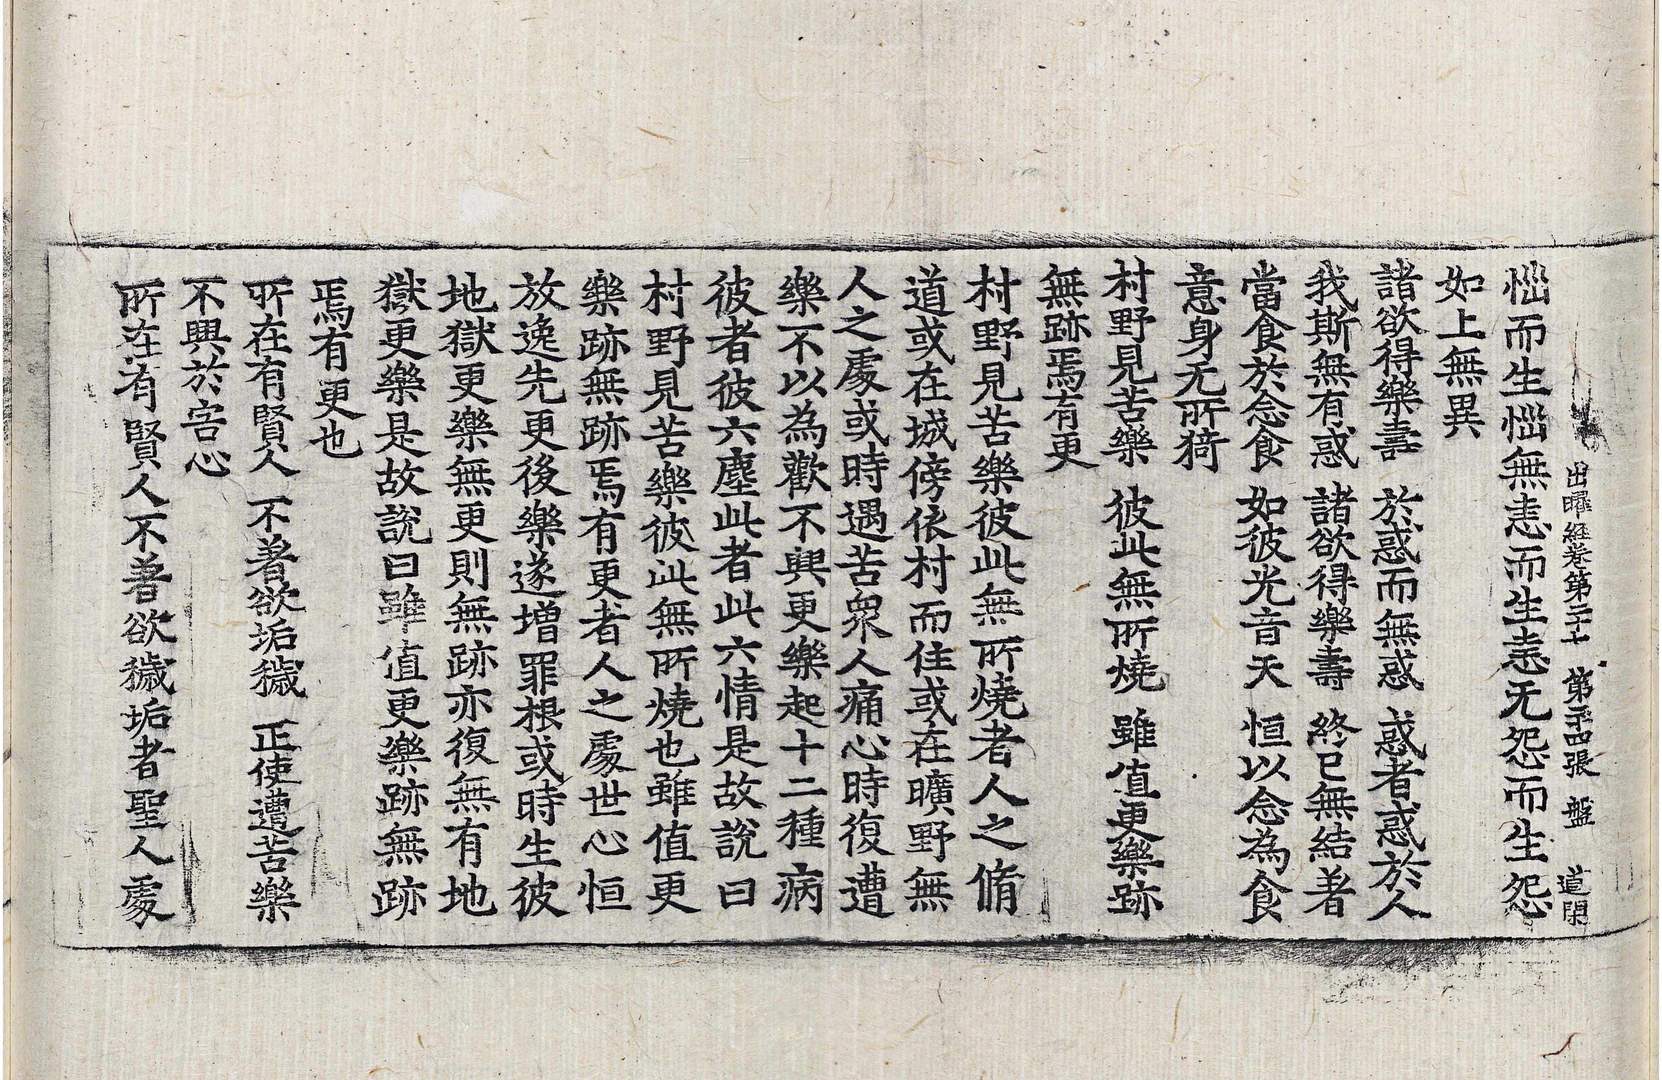 出曜経卷第二十七 第三十四張 盤 道閑
惱而生惱無恚而生恚无怨而生怨
如上無異
諸欲得樂壽 於惑而無惑 惑者惑於人
我斯無有惑 諸欲得樂壽 終已無結著
當食於念食 如彼光音天 恒以念為食
意身无所猗
村野見苦樂 彼此無所燒 雖值更樂跡
無跡焉有更
村野見苦樂彼此無所燒者人之脩
道或在城傍依村而住或在曠野無
人之處或時遇苦衆人痛心時復遭
樂不以為歡不興更樂起十二種病
彼者彼六塵此者此六情是故說曰
村野見苦樂彼此無所燒也雖值更
樂跡無跡焉有更者人之處世心恒
放逸先更後樂遂増罪根或時生彼
地獄更樂無更則無跡亦復無有地
獄更樂是故說曰雖值更樂跡無跡
焉有更也
所在有賢人 不著欲垢穢 正使遭苦樂
不興於害心
所在有賢人不著欲穢垢者聖人處